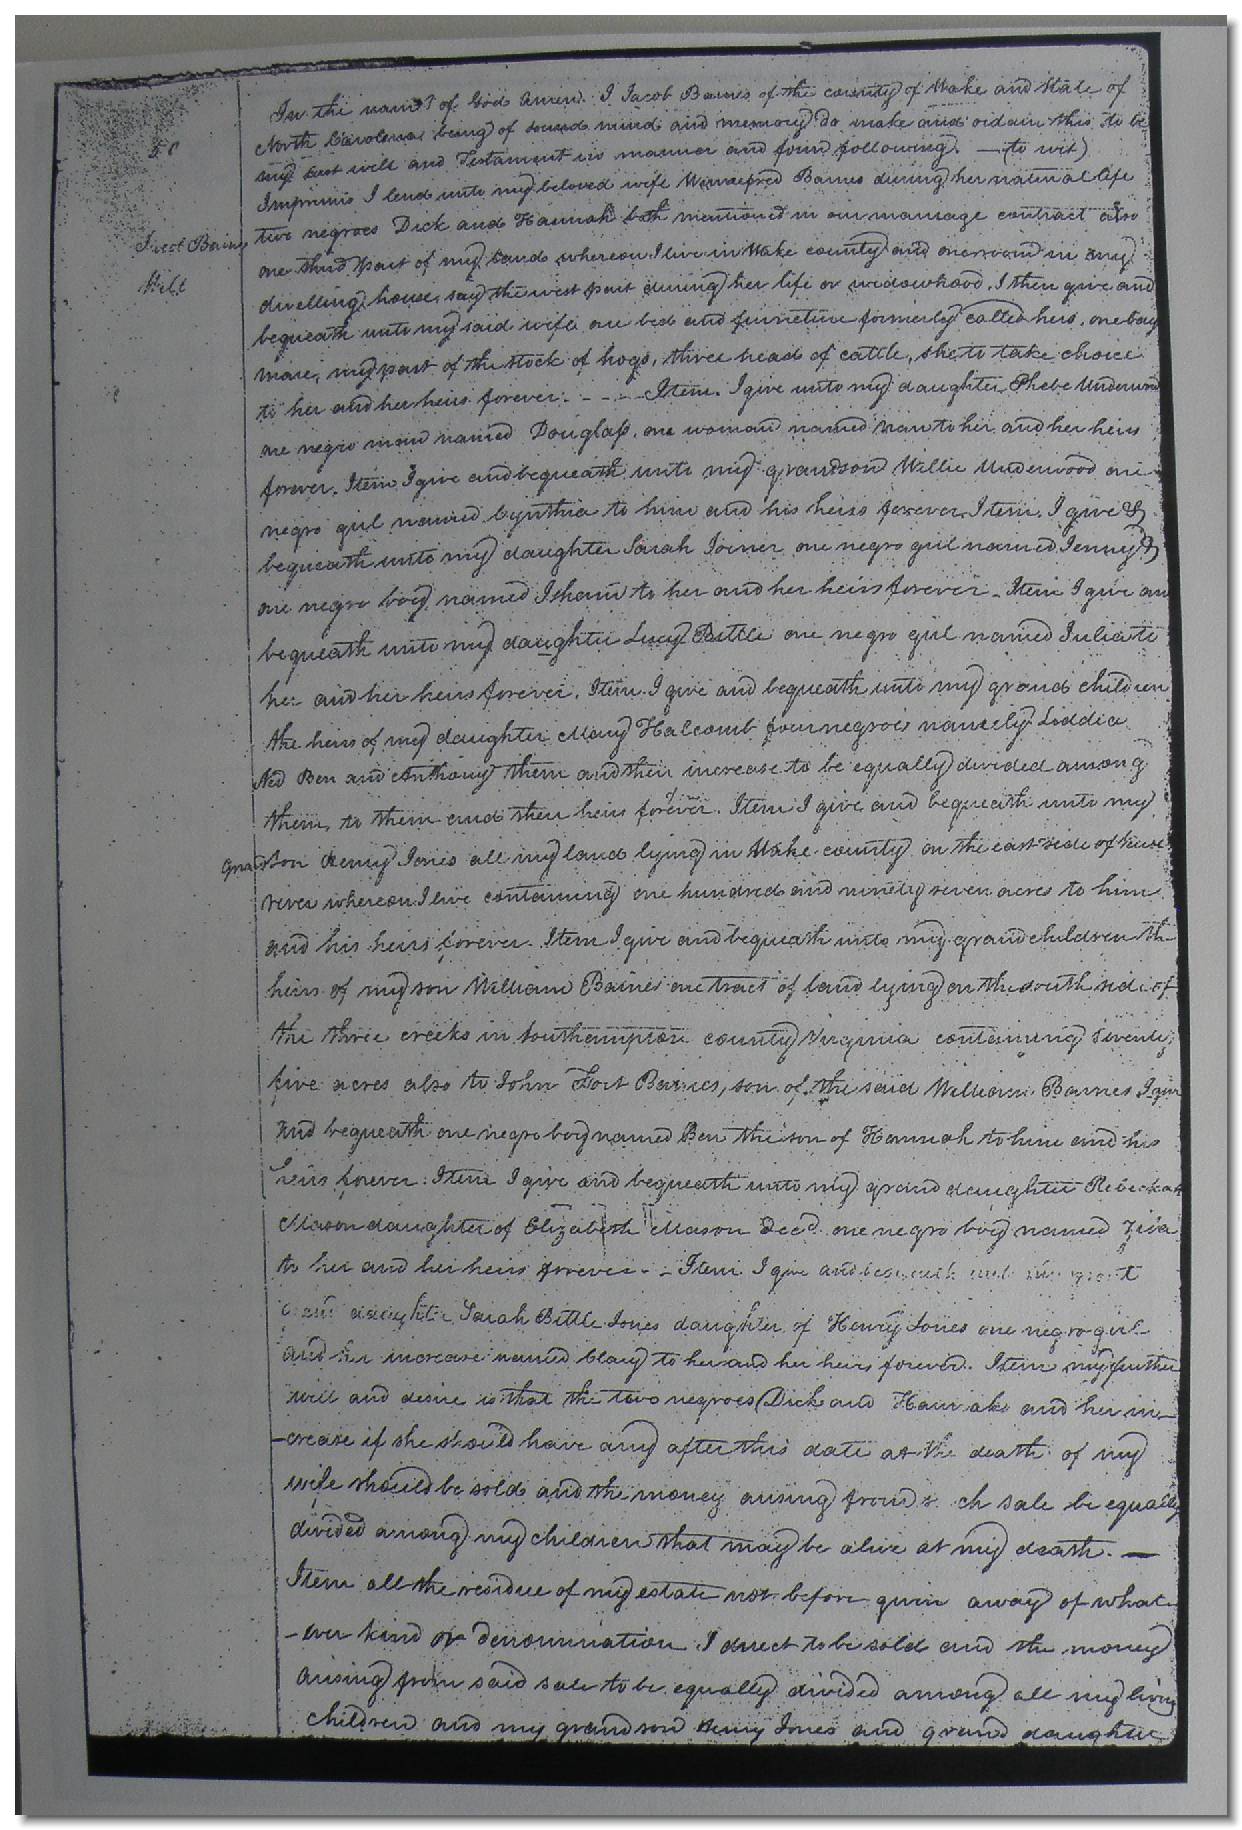 In the name of God Amen. I Jacob Barnes of the county of Wake and State of
North Carolina being of sound mind and memory do make and ordain this to be
my last will and Testament in manner and form following. — (to wit)
50
Imprimis I lend unto my beloved wife Winnefred Barnes during her natural life
two negroes Dick and Hannah both mentioned in our marriage contract also
Jacob Barnes
Will
one third part of my lands whereon I live in Wake county and one room in my
dwelling house, say the west part during her life or widowhood. I then give and
bequeath unto my said wife one bed and furniture formerly called hers, one bay
mare, my part of the stock of hogs, three head of cattle, she to take choice
to her and her heirs forever. - - - - Item. I give unto my daughter Phebe Underwood
one negro man named Douglass, one woman named Nan to her and her heirs
forever. Item I give and bequeath unto my grandson Willie Underwood one
negro girl named Cynthia to him and his heirs forever. Item. I give &
bequeath unto my daughter Sarah Joiner one negro girl named Jenny &
one negro boy named Isham to her and her heirs forever - Item I give an
bequeath unto my daughter Lucy Bittle one negro girl named Julia to
her and her heirs forever. Item. I give and bequeath unto my grand children
the heirs of my daughter Mary Halcomb four negroes namely Liddia
Ned Ben and Anthony them and their increase to be equally divided among
them, to them and their heirs forever. Item I give and bequeath unto my
Grandson Henry Jones all my land lying in Wake county on the east side of Neuse
river whereon I live containing one hundred and ninety seven acres to him
and his heirs forever. Item I give and bequeath unto my grandchildren th
heirs of my son William Barnes one tract of land lying on the south side of
the three creeks in Southampton county Virginia containing Seventy
five acres also to John Fort Barnes, son of the said William Barnes I give
and bequeath one negro boy named Ben the son of Hannah to him and his
heirs forever. Item I give and bequeath unto my grand daughter Rebeckah
Mason daughter of Elizabeth Mason Decd. one negro boy named
to her and her heirs forever - - Item I give and bequeath unto my great
grand daughter Sarah Bittle Jones daughter of Henry Jones one negro girl
and her increase named Clary to her and her heirs forever. Item my further
will and desire is that the two negroes Dick and Hannah and her in-
-crease if she should have any after this date at the death of my
wife should be sold and the money arising from such sale be equally
divided among my children that may be alive at my death. —
Item all the residue of my estate not before given away of what-
-ever kind or denomination I direct to be sold and the money
arising from said sale to be equally divided among all my living
children and my grandson Henry Jones and grand daughter